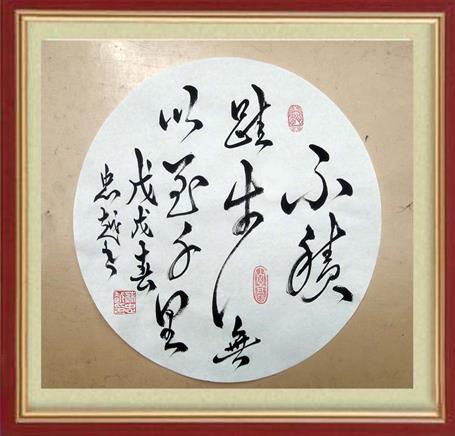 不積
跬步無
以至千里
戊戌春
忠越书